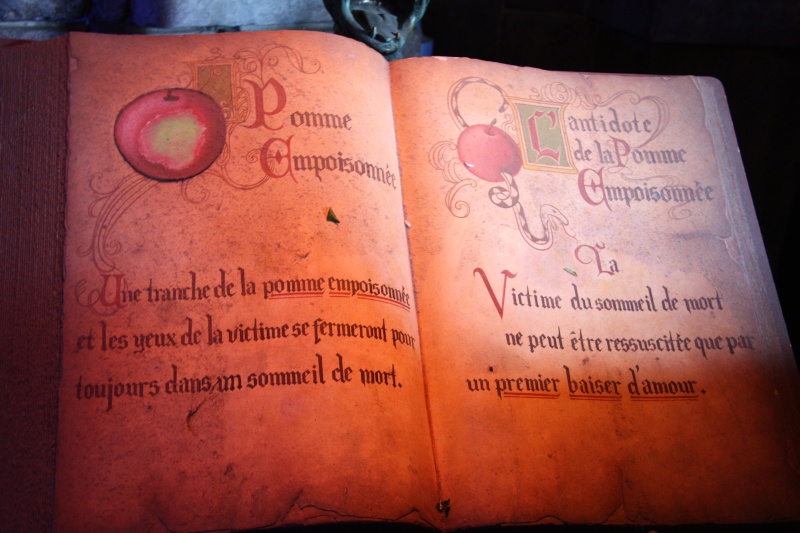 Pomme
Empoisonnée
Une tranche de la pomme empoisonnée
et les yeux de la victime se fermeront pour
toujours dans un sommeil de mort.
L'antidote
de la Pomme
Empoisonnée
La
Victime du sommeil de mort
ne peut être ressuscitée que par
un premier baiser d'amour.